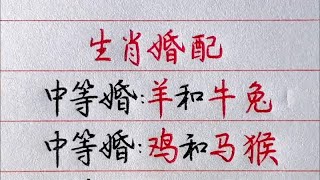 生肖婚配
中等婚:羊和牛兔
中等婚:鸡和马猴